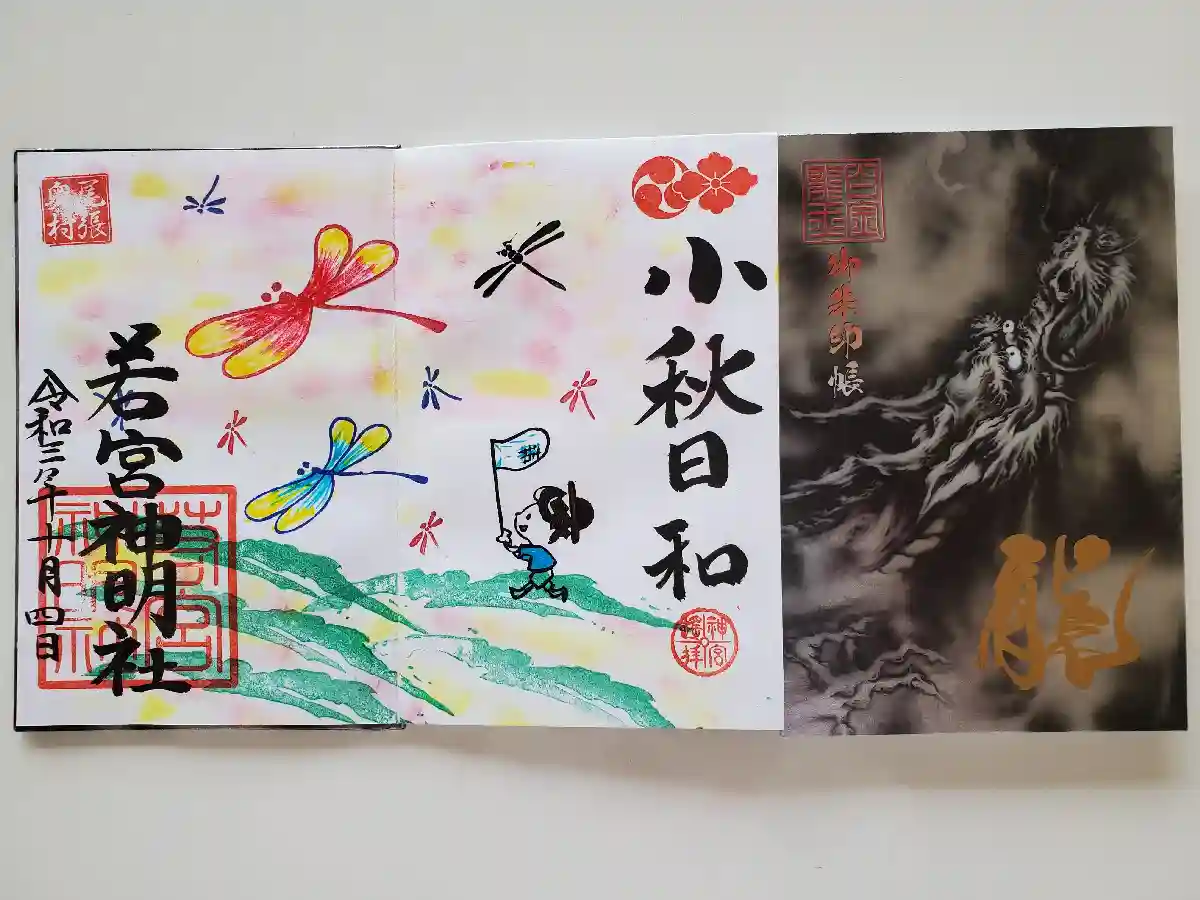 御朱印帳
龍
小秋日和
神宮
遙拝
尾張
奥村
若宮神明社
令和三年十一月四日